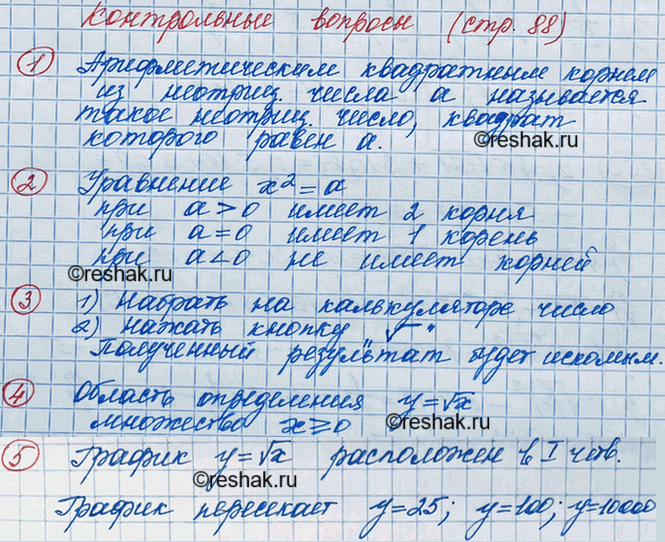 Контрольные вопросы (стр. 88)
1 Арифметическим квадратным корнем
из неотриц. числа a называется
такое неотриц. число, квадрат
которого равен a.
©reshak.ru
2 Уравнение x² = a
при a > 0 имеет 2 корня
при a = 0 имеет 1 корень
при a < 0 не имеет корней
©reshak.ru
3 1) Набрать на калькуляторе число
2) Нажать кнопку „√"
Полученный результат будет искомым.
4 Область определения y = √x
множество x ≥ 0
©reshak.ru
5 График y = √x расположен в I четв.
©reshak.ru
График пересекает y = 25; y = 100; y = 10000